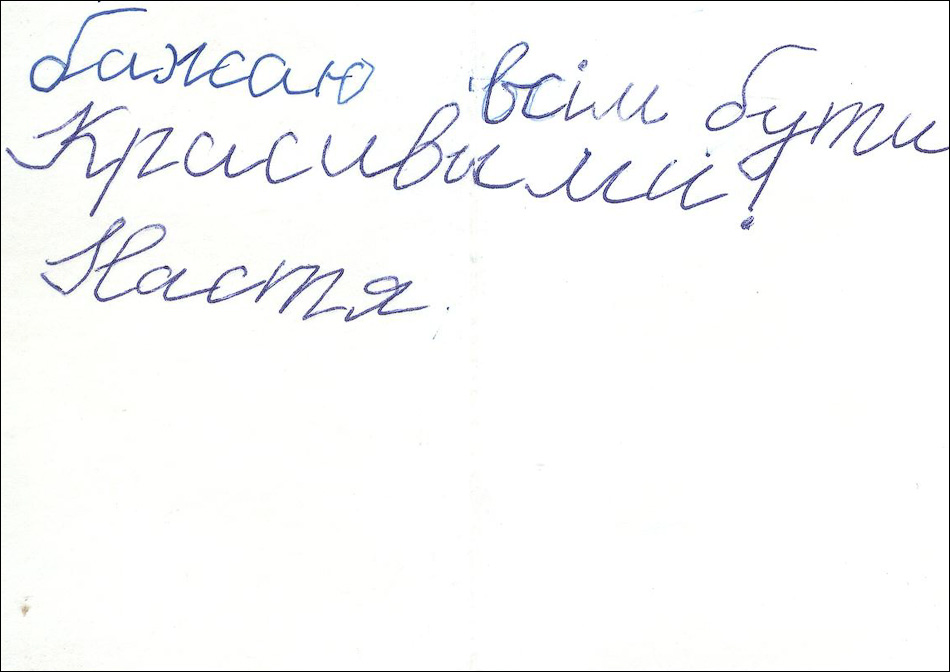 бажаю всім бути
Красивими!
Настя.